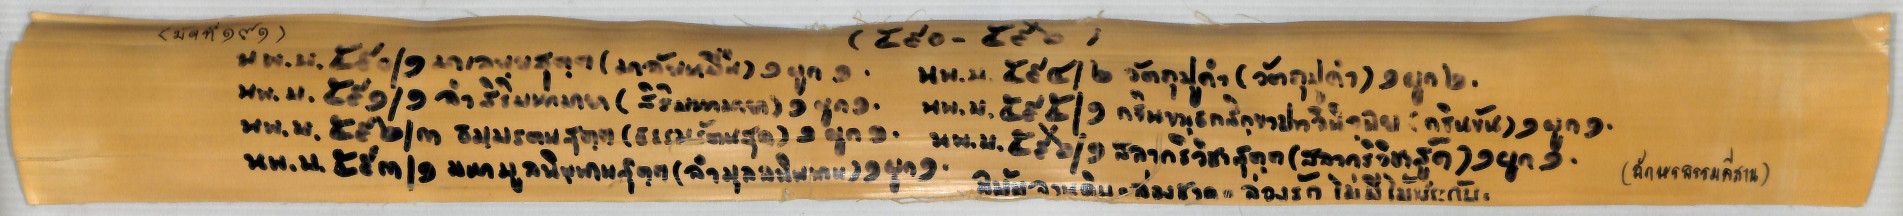 (มัดที่ ๑๙๑)
(๕๙๐ - ๕๙๖)
นพ.บ. ๕๙๐/๑ มาเลยยสุตฺต (มาลัยหมื่น) ๑ ผูก ๑.
นพ.บ. ๕๙๑/๑ ลำสิริมหามายา (สิริมหามายา) ๑ ผูก ๑.
นพ.บ. ๕๙๒/๓ ธมฺมรตนสุตฺต (ธรรมรัตนสูตร) ๑ ผูก ๑.
นพ.บ. ๕๙๓/๑ มหามูลนิพฺพานสุตฺต (ลำมูลนนิพพาน) ๑ ผูก ๑.
นพ.บ. ๕๙๔/๒ วัตถุปูคำ (วัตถุปูคำ) ๑ ผูก ๒.
นพ.บ. ๕๙๕/๑ กฐินขนฺธ (กฐินขันธ์) ๑ ผูก ๑.
นพ.บ. ๕๙๖/๑ สลากริวิชาสุตฺต (สลากริวิชาสูตร) ๑ ผูก ๑.
ฉบับลานดิบ - ล่องชาด - ล่องรัก ไม่มีไม้ประกับ.
(อักษรธรรมอีสาน)